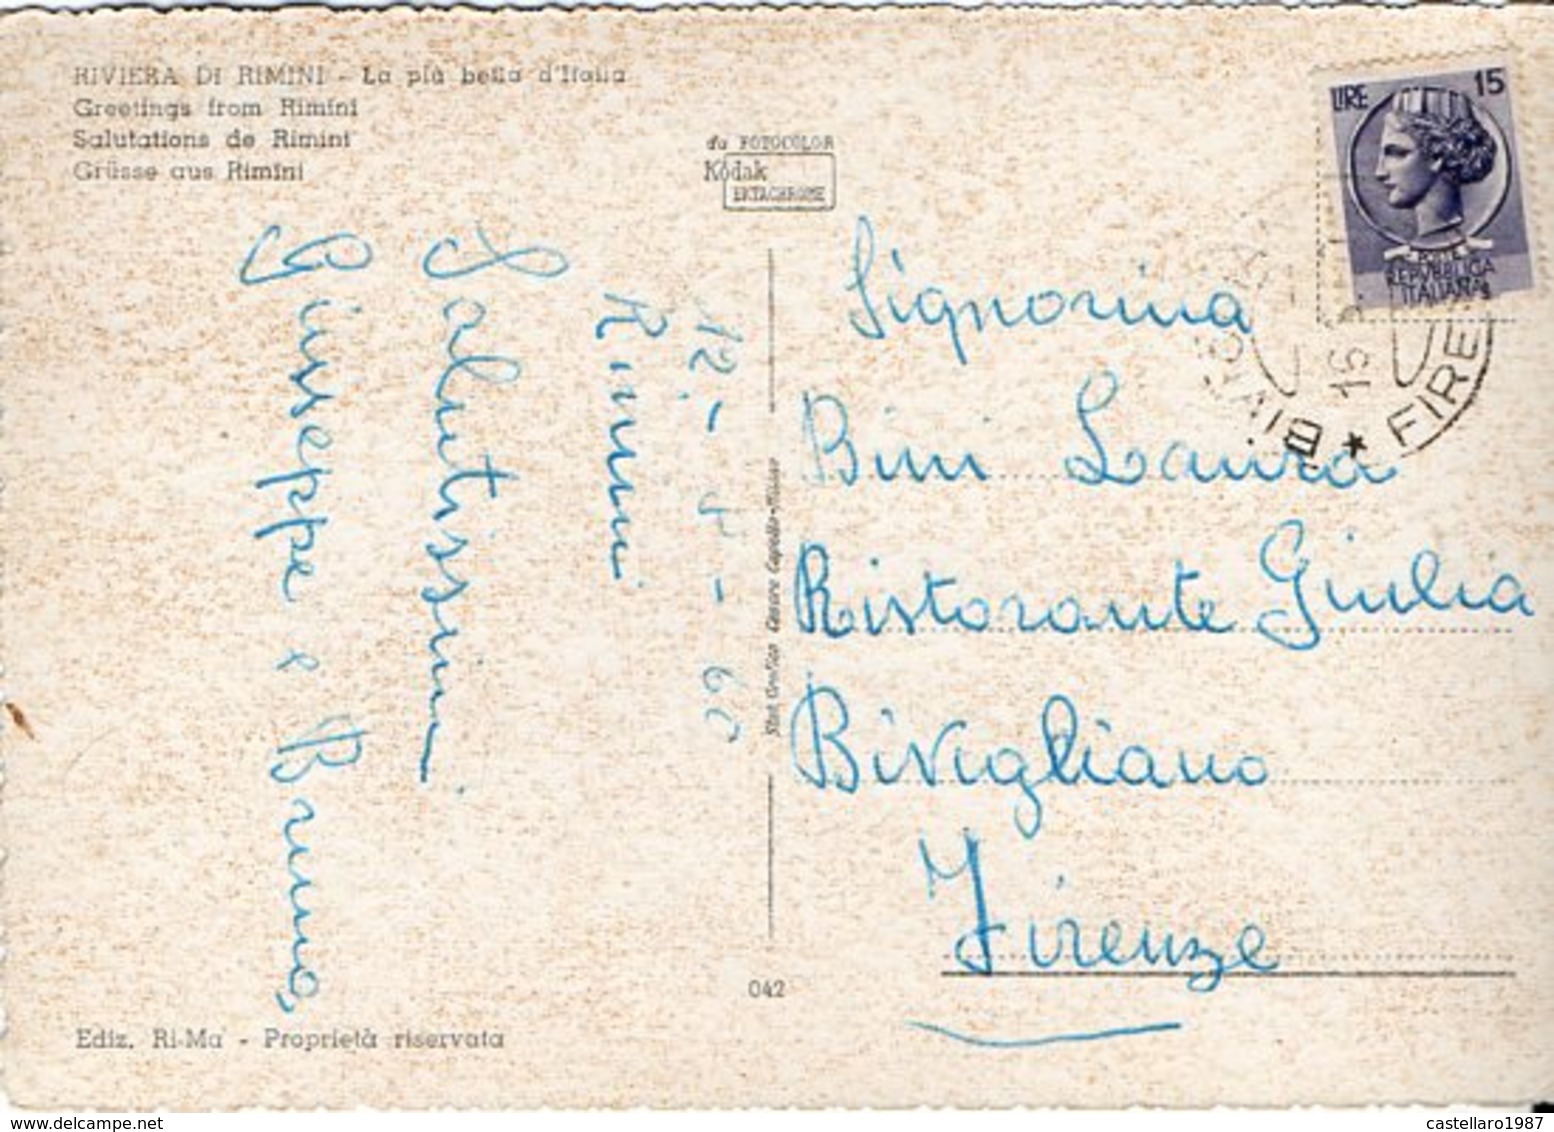 RIVIERA DI RIMINI - La più bella d'Italia
Greetings from Rimini
Salutations de Rimini
Grüsse aus Rimini
da FOTOCOLOR
Kodak
EKTACHROME
LIRE 15
POSTE
REPUBBLICA
ITALIANA
FIRE
Rimini
Salutissimi
Giuseppe e Bruno
Signorina
Bini Laura
Ristorante Giulia
Bivigliano
Firenze
042
Ediz. Ri-Ma - Proprietà riservata
delcampe.net
castellaro1987